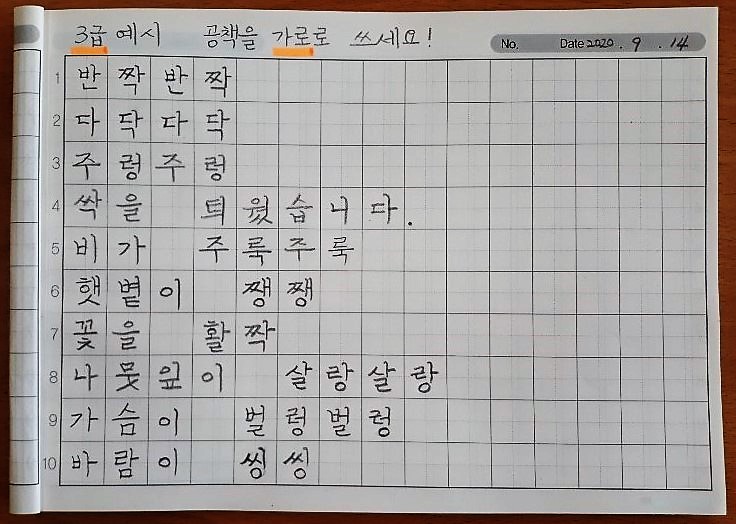 3급 예시 공책을 가로로 쓰세요!
No. Date 2020 . 9 . 14
1 반짝반짝
2 다닥다닥
3 주렁주렁
4 싹을 틔웠습니다.
5 비가 주룩주룩
6 햇볕이 쨍쨍
7 꽃을 활짝
8 나뭇잎이 살랑살랑
9 가슴이 벌렁벌렁
10 바람이 씽씽